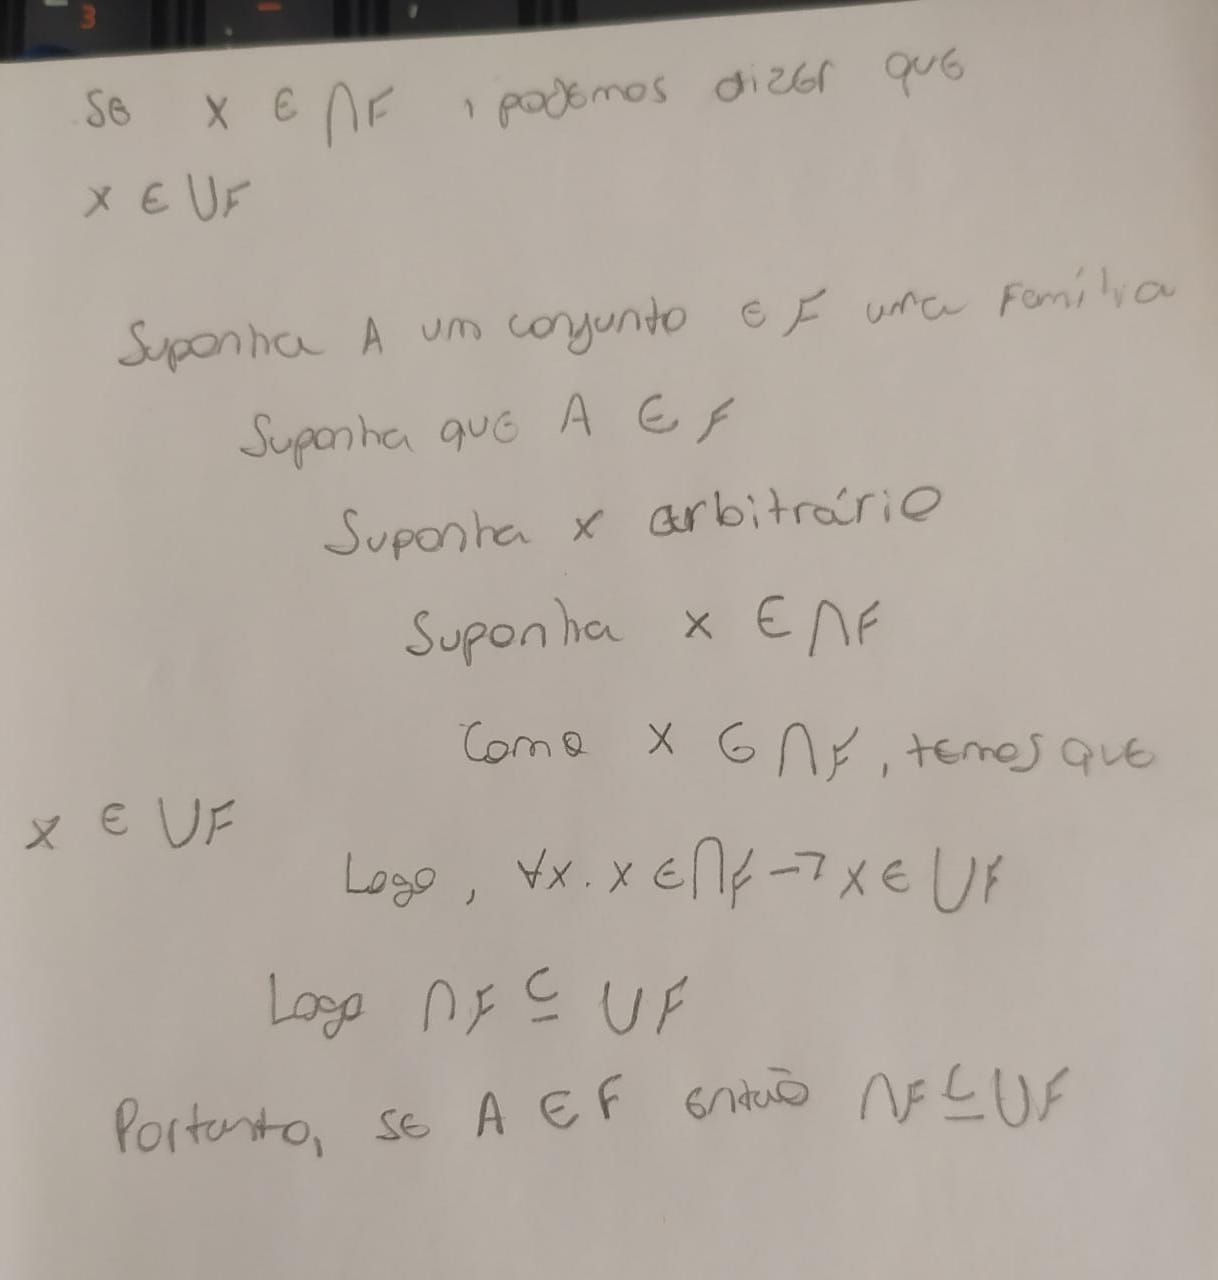 3
Se x ∈ ∩F, podemos dizer que
x ∈ ∪F
Suponha A um conjunto e F uma família
Suponha que A ∈ F
Suponha x arbitrário
Suponha x ∈ ∩F
Como x ∈ ∩F, temos que
x ∈ ∪F
Logo, ∀x. x ∈ ∩F → x ∈ ∪F
Logo ∩F ⊆ ∪F
Portanto, se A ∈ F então ∩F ⊆ ∪F